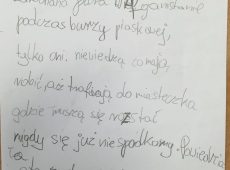 podczas burzy piaskowej,
tylko oni. niewiedzą co mają
robić, aż trafiają do miasteczka
gdzie muszą się stać
nigdy się już nie spotkamy. Powiedzia